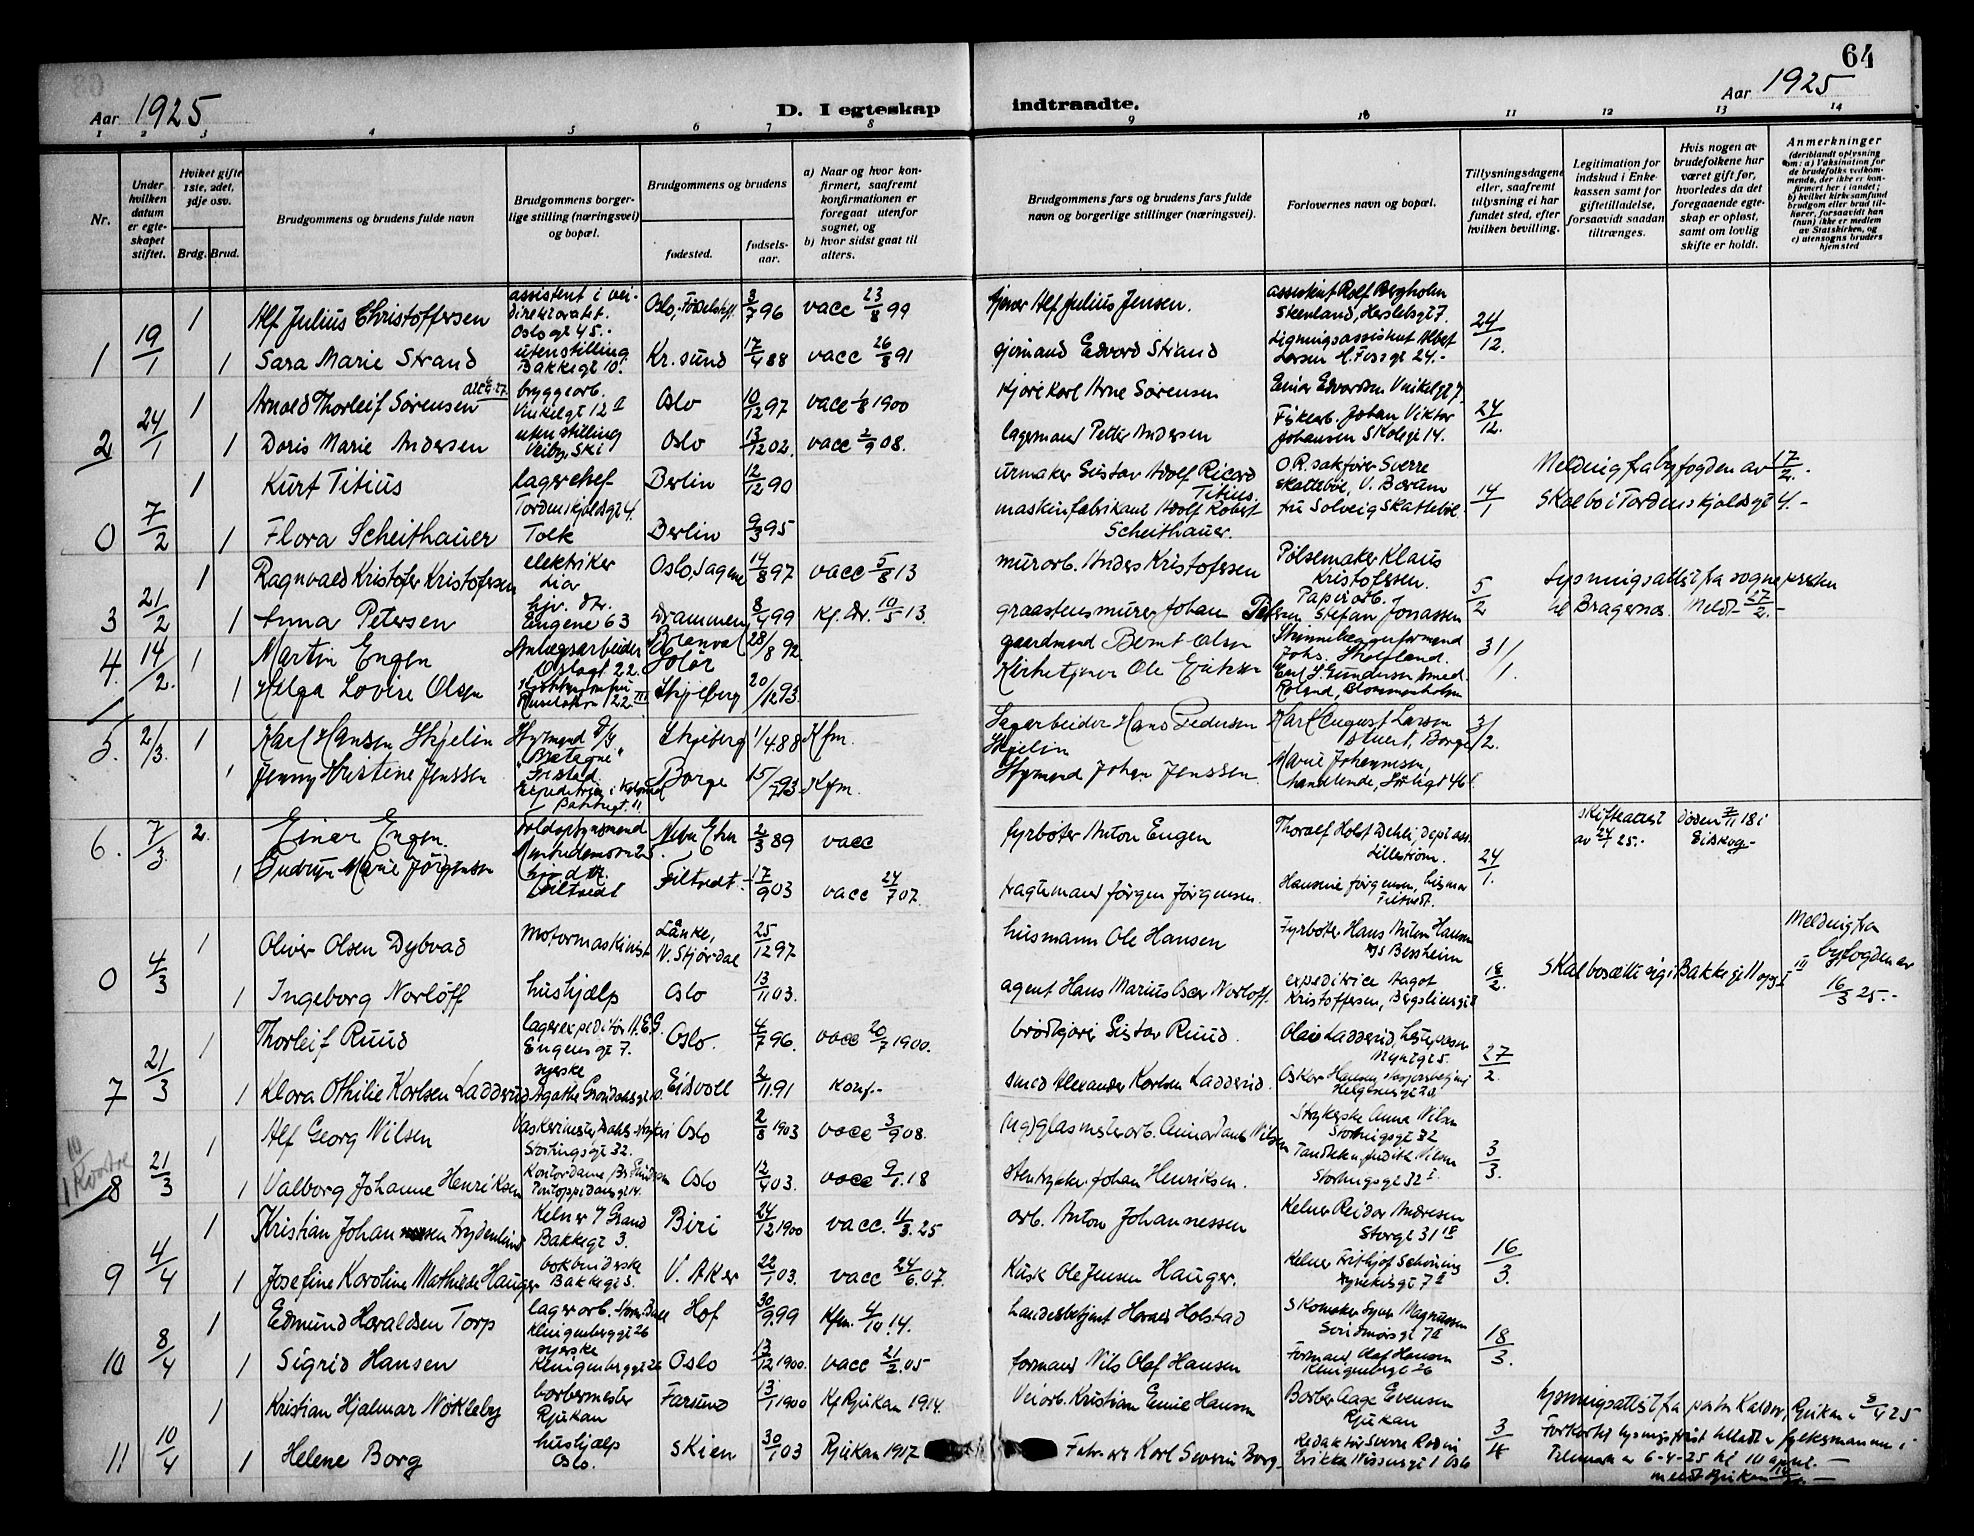 64
Aar 1925
D. I egteskap indtraadte.
Aar 1925
1 2 3 4 5 6 7 8 9 10 11 12 13 14
Nr.
Under hvilken datum er egteskapet stiftet.
Hviket gifte 1ste, 2det, 3dje osv.
Brdg. Brud.
Brudgommens og brudens fulde navn
Brudgommens borgerlige stilling (næringsvei) og bopæl.
Brudgommens og brudens
fødested.
fødselsaar.
a) Naar og hvor konfirmert, saafremt konfirmationen er foregaat utenfor sognet, og
b) hvor sidst gaat til alters.
Brudgommens fars og brudens fars fulde navn og borgerlige stillinger (næringsvei).
Forlovernes navn og bopæl.
Tillysningsdagene eller, saafremt tillysning ei har fundet sted, efter hvilken bevilling.
Legitimation for indskud i Enkekassen samt for giftetilladelse, forsaavidt saadan tiltrænges.
Hvis nogen av brudefolkene har været gift før, hvorledes da det foregaaende egteskap er opløst, samt om lovlig skifte er holdt.
Anmerkninger (deriblandt oplysning om: a) Vaksination for de brudefolks vedkommende, der ikke er konfirmert her i landet; b) hvilket kirkesamfund brudgom eller brud tilhører, forsaavidt han (hun) ikke er medlem av Statskirken, og c) utensogns bruders hjemsted
1 19/1 1 Alf Julius Christoffersen assistent i veidirektoratet. Oslogt 45.- Oslo, 3/7 96 vacc 23/8 99 Alf Julius Jensen. assistent Rolf Bergholm Stenland, Herslebsgt 7. 24/12.
1 Sara Marie Strand uten stilling Bakkegt 10. Kr.sund 17/4 88 vacc 26/8 91 Edvard Strand Ligningsassistent Albert Larsen H. Fossgt 24.-
2 24/1 1 Arnold Thorleif Sørensen bryggearb. Vinkelgt 12 II Oslo 10/12 97 vacc 1/8 1900 Karl Arne Sørensen Einar Edvardsen Vinkelgt 7. 24/12.
1 Doris Marie Andersen uten stilling Veiby, Ski Oslo 13/12 02. vacc 2/9 08. lagermand Petter Andersen Johan Viktor Johansen Skolegt 14.
0 7/2 1 Kurt Titius lagerchef Tordenskjoldsgt 4. Berlin 12/12 90 urmaker Gustav Adolf Ricard Titius. O.R.sakfører Sverre Skattebøl, V. Bærum 14/1 Melding fra byfogden av 17/2.
1 Flora Scheithauer Tolk Berlin 9/3 95 maskinfabrikant Adolf Robert Scheithauer. fru Solveig Skattebøl. Skal bo i Tordenskjoldsgt 4.-
3 21/2 1 Ragnvald Kristofer Kristofersen elektriker Lier Oslo, Sagene 14/8 97 vacc 5/8 13 murarb. Anders Kristofersen Pølsemaker Klaus Kristofersen. 5/2 Lysningsattest fra sognepresten
1 Anna Petersen hjv. dtr. Engene 63 Drammen 8/4 99 Kf. Dr. 10/5 13. graastensmurer Johan Petersen Papirarb. Stefan Jonassen til Bragernes. Meldt 27/2.-
4. 14/2. 1 Martin Engen Anlægsarbeider Oslogt 22. Solør 28/8 92 gaardmand Bernt Olsen Johs. 31/1.
1 Helga Lovise Olsen Skjeberg 20/12 93. Kirketjener Ole Eriksen Carl S. Gundersen smed
5. 2/3. 1 Karl Hansen Skjelin Styrmand D/S "Bretagne" Skjeberg 1/4 88 Kfm. Sagarbeider Hans Pedersen Skjelin Karl August Larsen stuert, Borge 3/2.
1 Jenny Kristine Jenssen Borge 15/7 93 Kfm. Styrmand Johan Jenssen Marie Johannesen, handlende,
6. 7/3. 2. Einar Engen. 2/3 89 vacc fyrbøter Anton Engen Thoralf Holst Dehli, Lillestrøm. 24/1. Skifteattest av 24/1 25.- Døden 7/11 18 i Eidskog-
1 Gudrun Marie Jørgensen hjv. dtr. Filtvedt Filtvedt. 17/9 03 vacc 24/7 07. Jørgen Jørgensen. Hansine Jørgensen, Filtvedt.
0 4/3 1 Oliver Olsen Dybvad motormaskinist Lånke, N. Stjørdal 25/12 97 husmann Ole Hansen Fyrbøter Hans Anton Hansen 18/2. Skal bosætte sig i Bakkegt 11 opg I III Melding fra byfogden av 16/3 25.-
1 Ingeborg Norløff hushjælp Oslo 13/11 03. agent Hans Marius Oscar Norløff. expeditrice Aagot Kristoffersen,
7 21/3 1 Thorleif Ruud lagerexpeditør A.E.G. Engensgt 7. Oslo. 4/7 96. vacc 20/7 1900. brødkjører Gustav Ruud. Olav Ladderud, 27/2.
1 Klara Othilie Karlsen Ladderud syerske Eidsvoll 2/11 91 konf.- smed Alexander Karlsen Ladderud. Oskar Hansen
10/1 Kvartal
8 21/3 1 Alf Georg Nilsen Stortingsgt 32. Oslo 2/8 1903 vacc 3/9 08. Nilsen Strykerske Anna Nilsen Stortingsgt 32 3/3.
1 Valborg Johanne Henriksen Kontordame Pontoppidansgt 14. Oslo 12/4 03. vacc 9/1 18 Johan Henriksen. Judith Nilsen Stortingsgt 32 I
9 4/4 1 Kristian Johannesen Frydenlund Kelner Grand Bakkegt 3. Biri 24/12 1900 vacc. 11/3. 25 arb. Anton Johannessen Kelner Reidar Andresen Storgt 31 IV 16/3.
1 Josefine Karoline Mathilde Hauger bokbinderske Bakkegt 3. V. Aker 22/1 03. vacc 24/6 07. Kusk Ole Jensen Hauger. Kelner Fritjof Schøning
10 8/4 1 Edmund Haraldsen Torp lagerarb. Klingenberggt 26 Hof 30/9 99 Kfm. 4/10 14. Harald Holstad Skomaker Syver Magnussen 18/3.
1 Sigrid Hansen syerske Klingenberggt 26 Oslo 13/12 1900. vacc 21/2. 05 formand Nils Olaf Hansen Formand Olaf Hansen Klingenberggt 26
11 10/4 1 Kristian Hjalmar Nøkleby barbermester Rjukan Farsund 13/1 1900 Kf Rjukan 1914. Veiarb. Kristian Emil Hansen Barber Aage Evensen Rjukan 3/4 Lysningsattest fra pastor Kaldor, Rjukan 8/4 25
1 Helene Borg hushjælp Oslo. Skien 30/1 03 Rjukan 1917 Fabr. arb Karl Severin Borg- Redaktør Sverre Erikka Nissensgt 1 Oslo Forkortet lysningsfrist tilladt av fylkesmannen i Telemark av 6-4-25 til 10 april.- meldt Rjukan